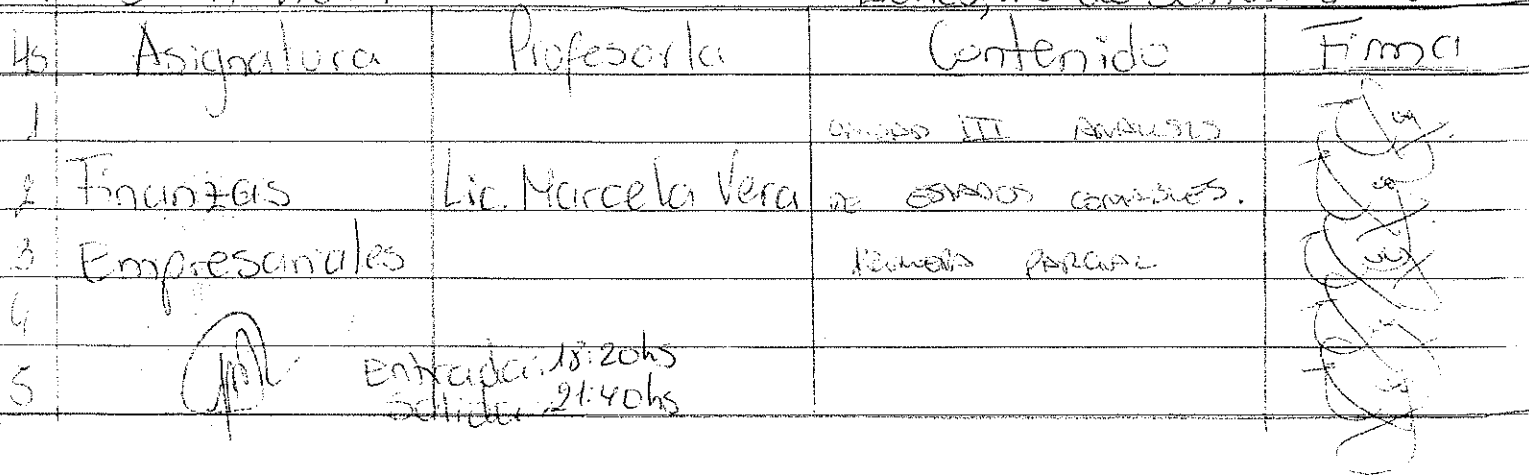 Hs Asignatura Profesor/a Contenido Firma
1 UNIDAD III ANALISIS
2 Finanzas Lic. Marcela Vera DE ESTADOS CONTABLES.
3 Empresariales PRIMERA PARCIAL
4
5 Entrada: 18:20hs
Salida: 21:40hs